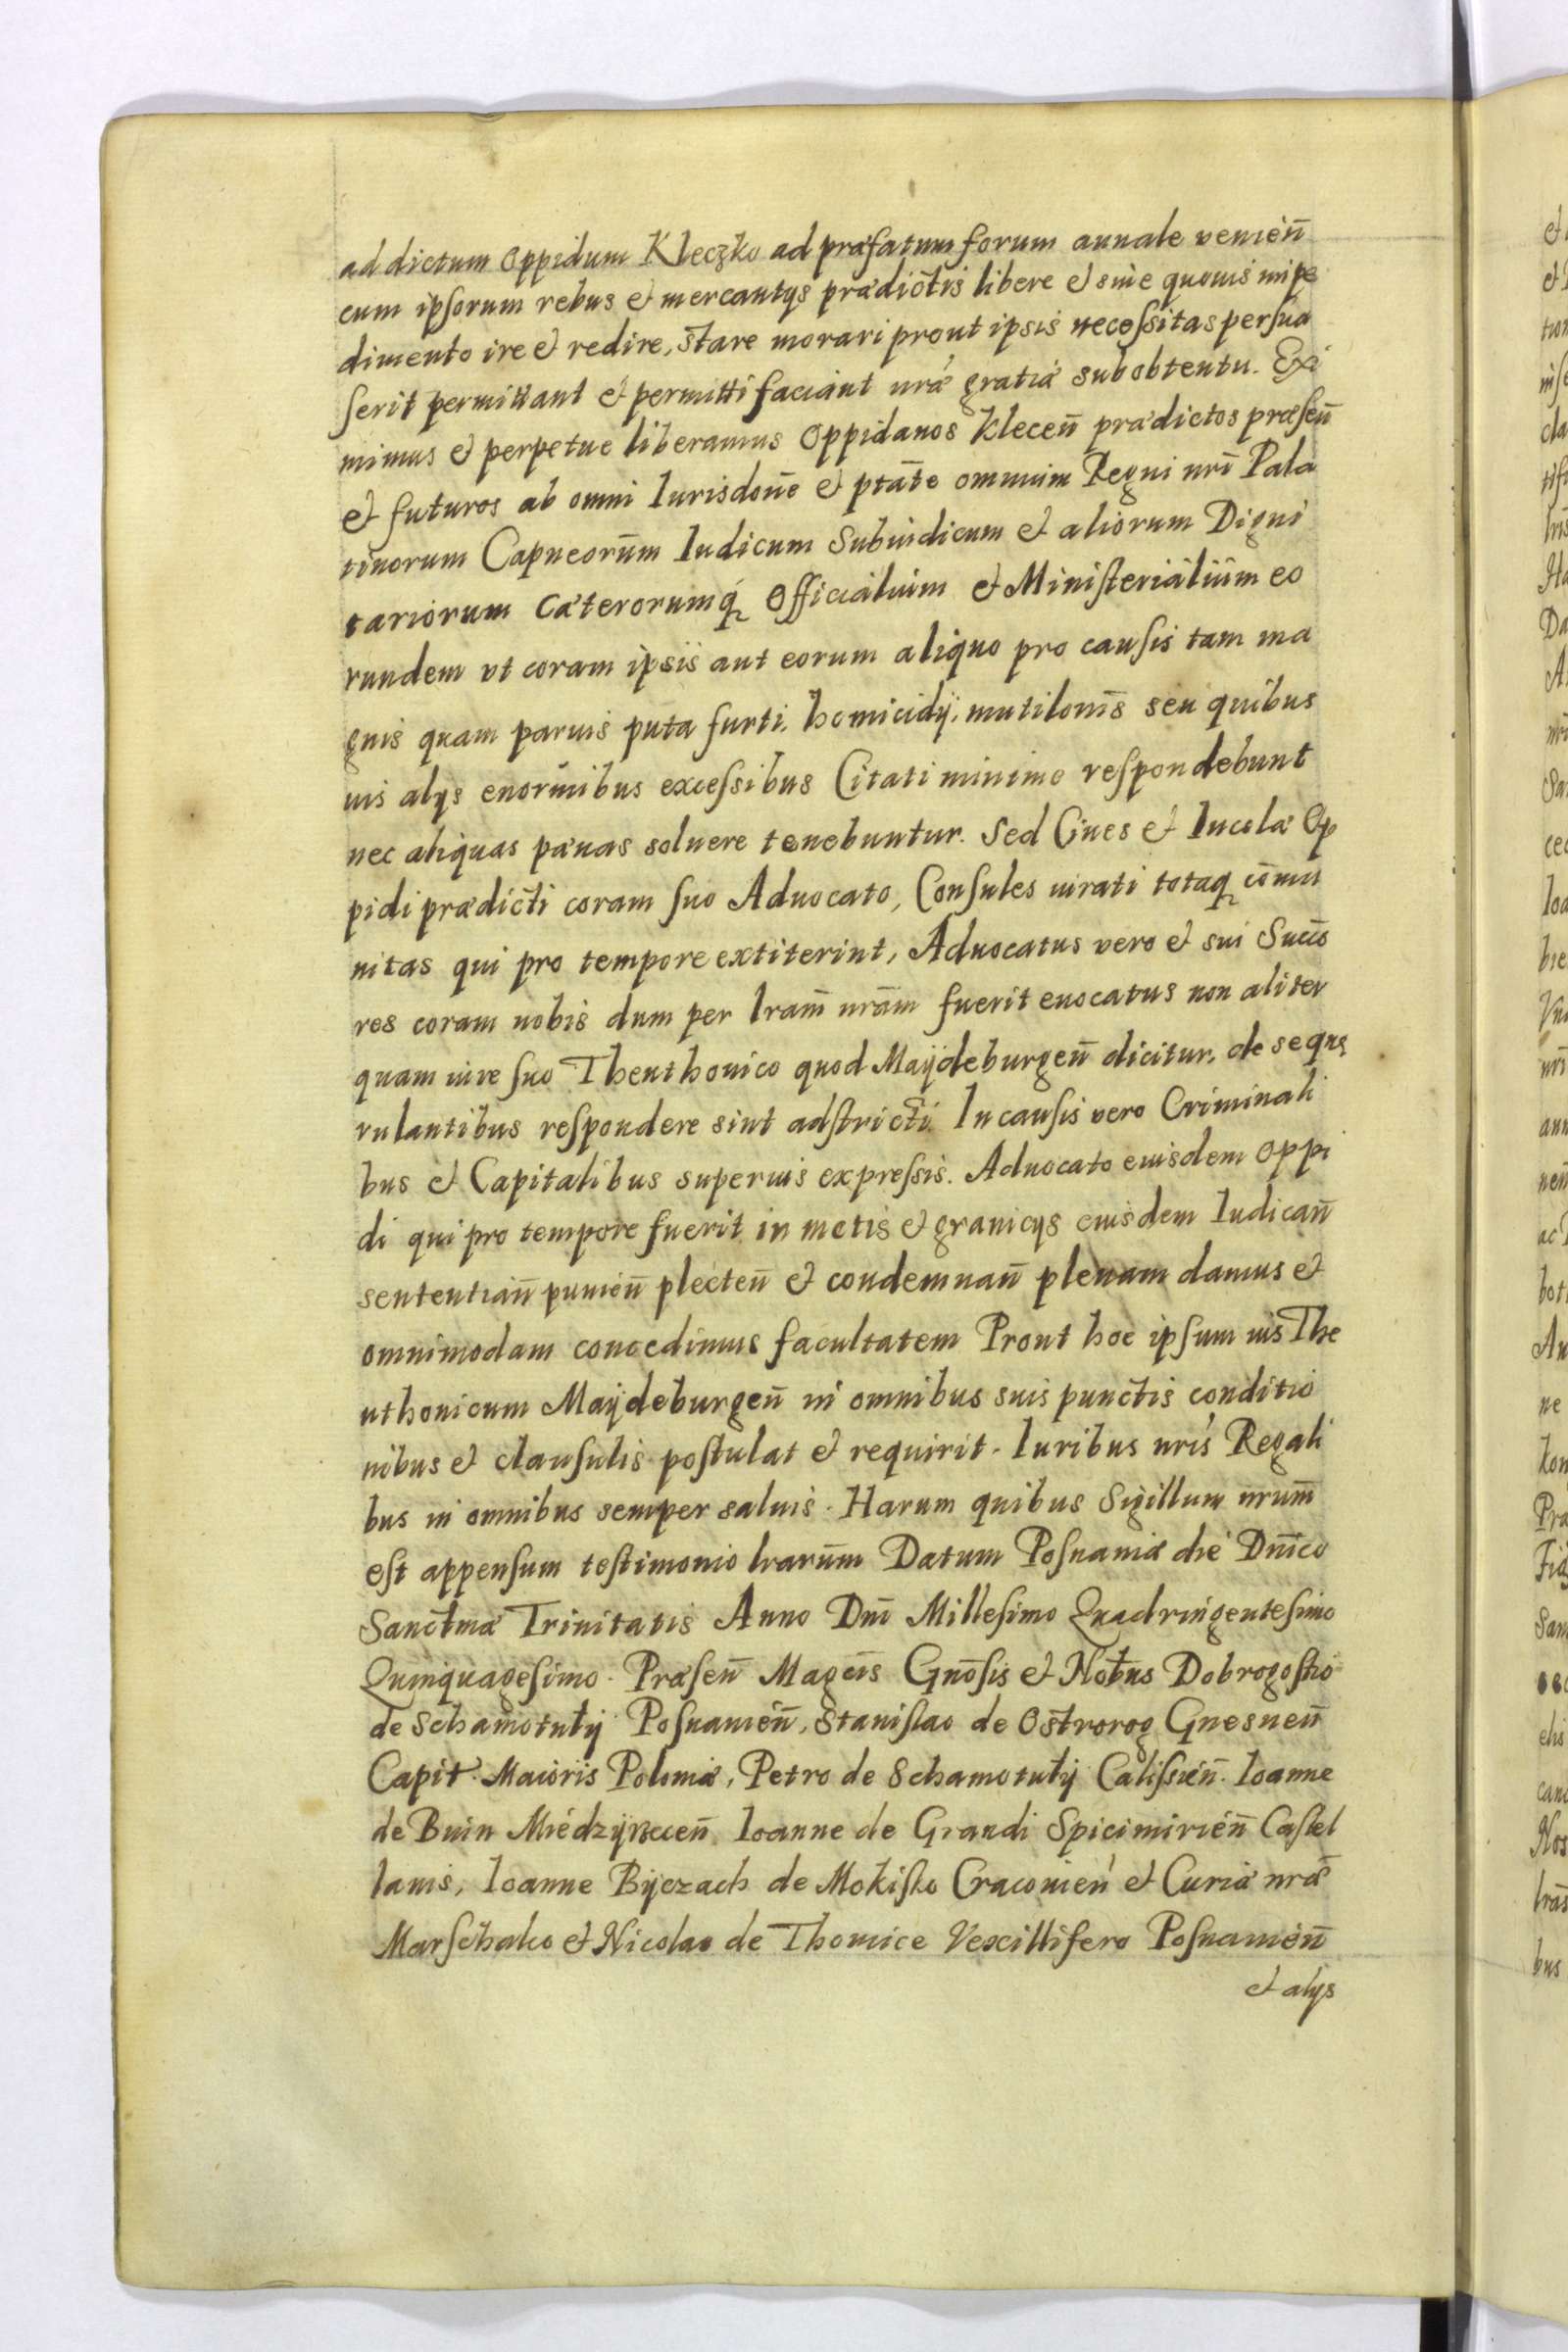 ad dictum Oppidum Kleczko ad præfatum forum annale venien̄
cum ipsorum rebus et mercantijs prædictis libere et sine quouis impe
dimento ire et redire, stare morari prout ipsis necessitas persua
serit permittant et permitti faciant nr̄æ gratiæ sub obtentu. Exi
mimus et perpetue liberamus Oppidanos Klecen̄ prædictos præsen̄
et futuros ab omni Iurisdon̄e et ptāte omnium Regni nr̄i Pala
tinorum Capneorūm Iudicum Subiudicum et aliorum Digni
tariorum Cæterorumq́ Officialium et Ministerialium eo
rundem vt coram ipsis aut eorum aliquo pro causis tam ma
gnis quam paruis puta furti, homicidij, mutilonīs seu quibus
uis alijs enormibus excessibus Citati minime respondebunt
nec aliquas pænas soluere tenebuntur. Sed Ciues et Incolæ Op
pidi prædicti coram suo Aduocato, Consules iurati totaq cōmu
nitas qui pro tempore extiterint, Aduocatus vero et sui Succ̄o
res coram nobis dum per lram̄ nrām fuerit euocatus non aliter
quam iure suo Theuthonico quod Maÿdeburgen̄ dicitur, de se quæ
rulantibus respondere sint adstricti. In causis vero Criminali
bus et Capitalibus superius expressis. Aduocato eiusdem Oppi
di qui pro tempore fuerit in metis et granicijs eiusdem Iudican̄
sententian̄ punien̄ plecten̄ et condemnan̄ plenam damus et
omnimodam concedimus facultatem Prout hoc ipsum ius The
uthonicum Maÿdeburgen̄ in omnibus suis punctis conditio
nibus et clausulis postulat et requirit. Iuribus nrīs Regali
bus in omnibus semper saluis. Harum quibus Sigillum nrum̄
est appensum testimonio lrarum̄ Datum Posnaniæ die Dn̄ico
Sanctmæ Trinitatis Anno Dnī Millesimo Quadringentesimo
Quinquagesimo. Præsen̄ Magcīs Gnōsis et Nobūs Dobrogostio
de Schamotulÿ Posnanien̄, Stanislao de Ostrorog Gnesnen̄
Capit. Maioris Poloniæ, Petro de Schamotulÿ Calissien̄. Ioanne
de Bnin Miedzÿrzecen̄. Ioanne de Grandi Spicimirien̄ Castel
lanis, Ioanne Bÿczach de Mokisko Cracouien̄ et Curiæ nrǣ
Marschalco et Nicolao de Thomice Vexillifero Posnanien̄
et alijs